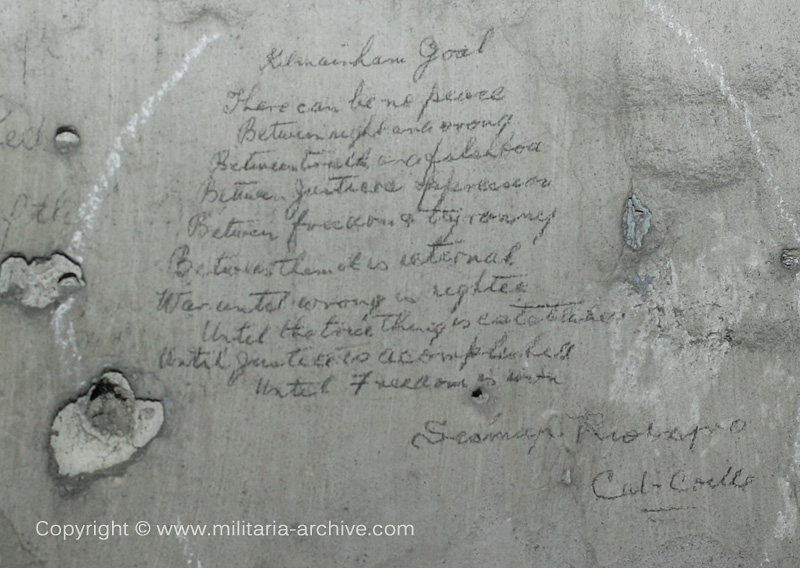 Kilmainham Goal
There can be no peace
Between right and wrong
Between truth and falsehood
Between Justice & oppression
Between freedom & tyranny
Between them it is eternal
War until wrong is righted
Until the true thing is
Until Justice is acomplished
Until Freedom is won
Copyright © www.militaria-archive.com